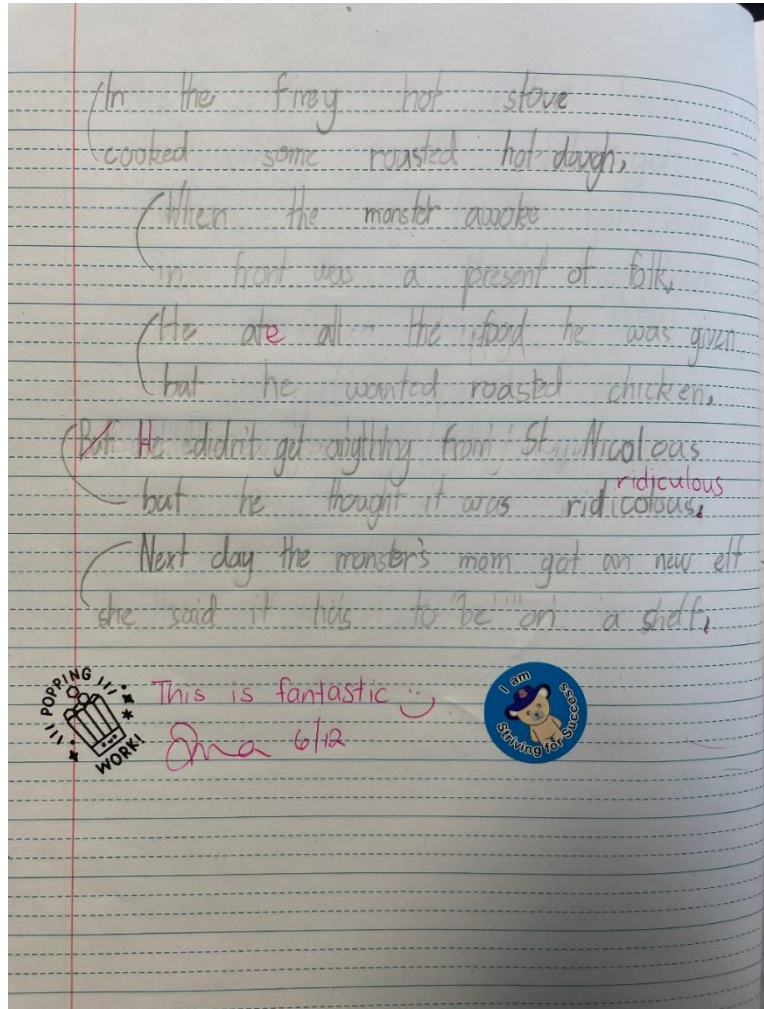 In the firey hot stove
cooked some roasted hot dough.
When the monster awoke
in front was a present of folk.
He ate all the food he was given
but he wanted roasted chicken.
But He didn't get anything from St Nicolous
ridiculous
but he thought it was ridicolous.
Next day the monster's mom got an new elf
she said it has to be on a shelf.
POPPING WORK!
This is fantastic
6/12
I am Striving for Success